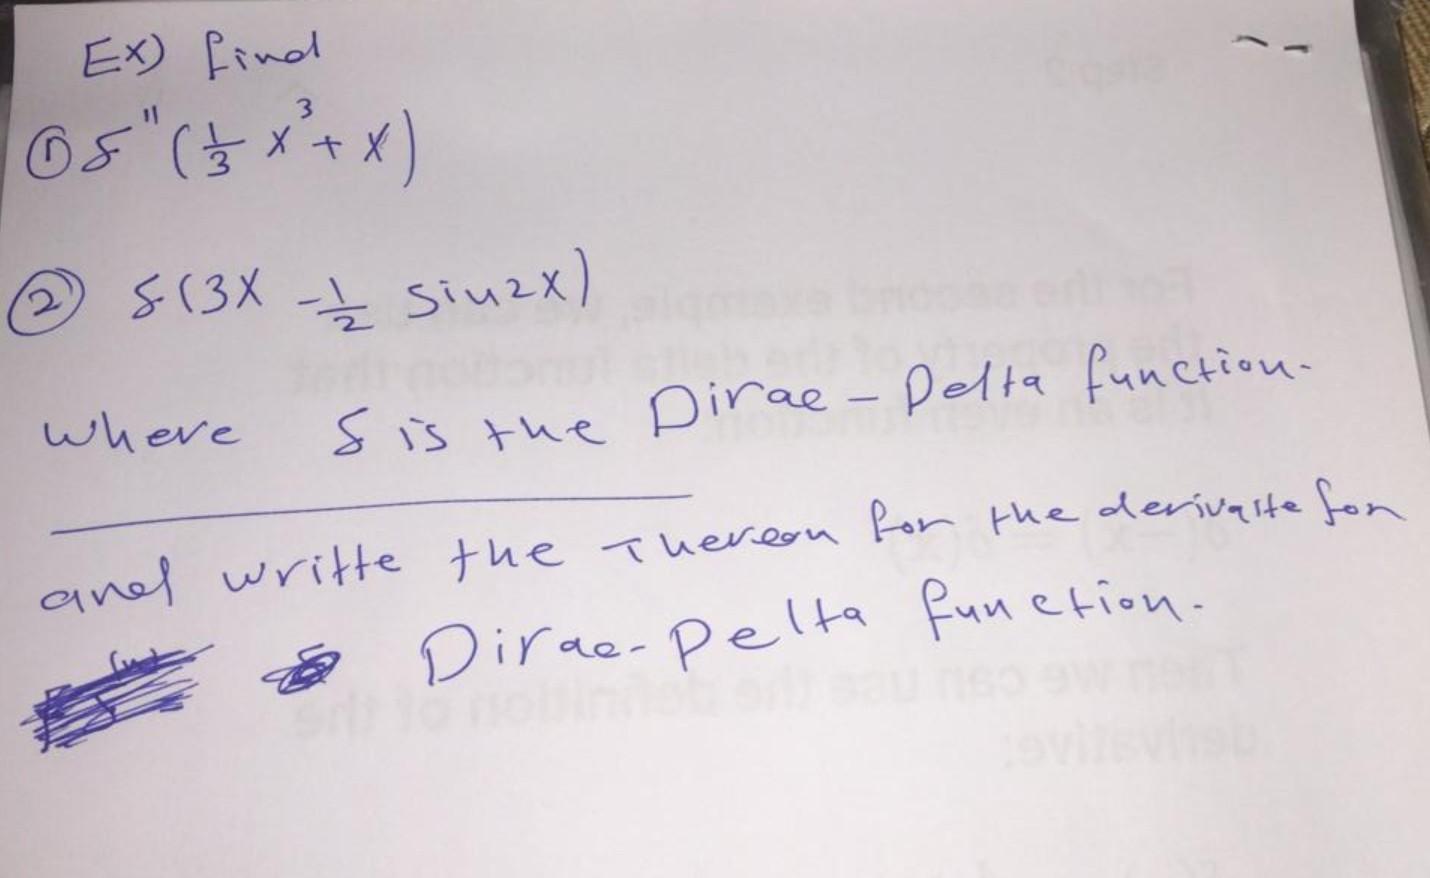 Ex) find
① δ"(1/3 x³ + x)
② δ(3x - 1/2 sin2x)
where δ is the Dirac-Delta function.
and writte the Thereom for the derivaite for
Dirac-Delta function.